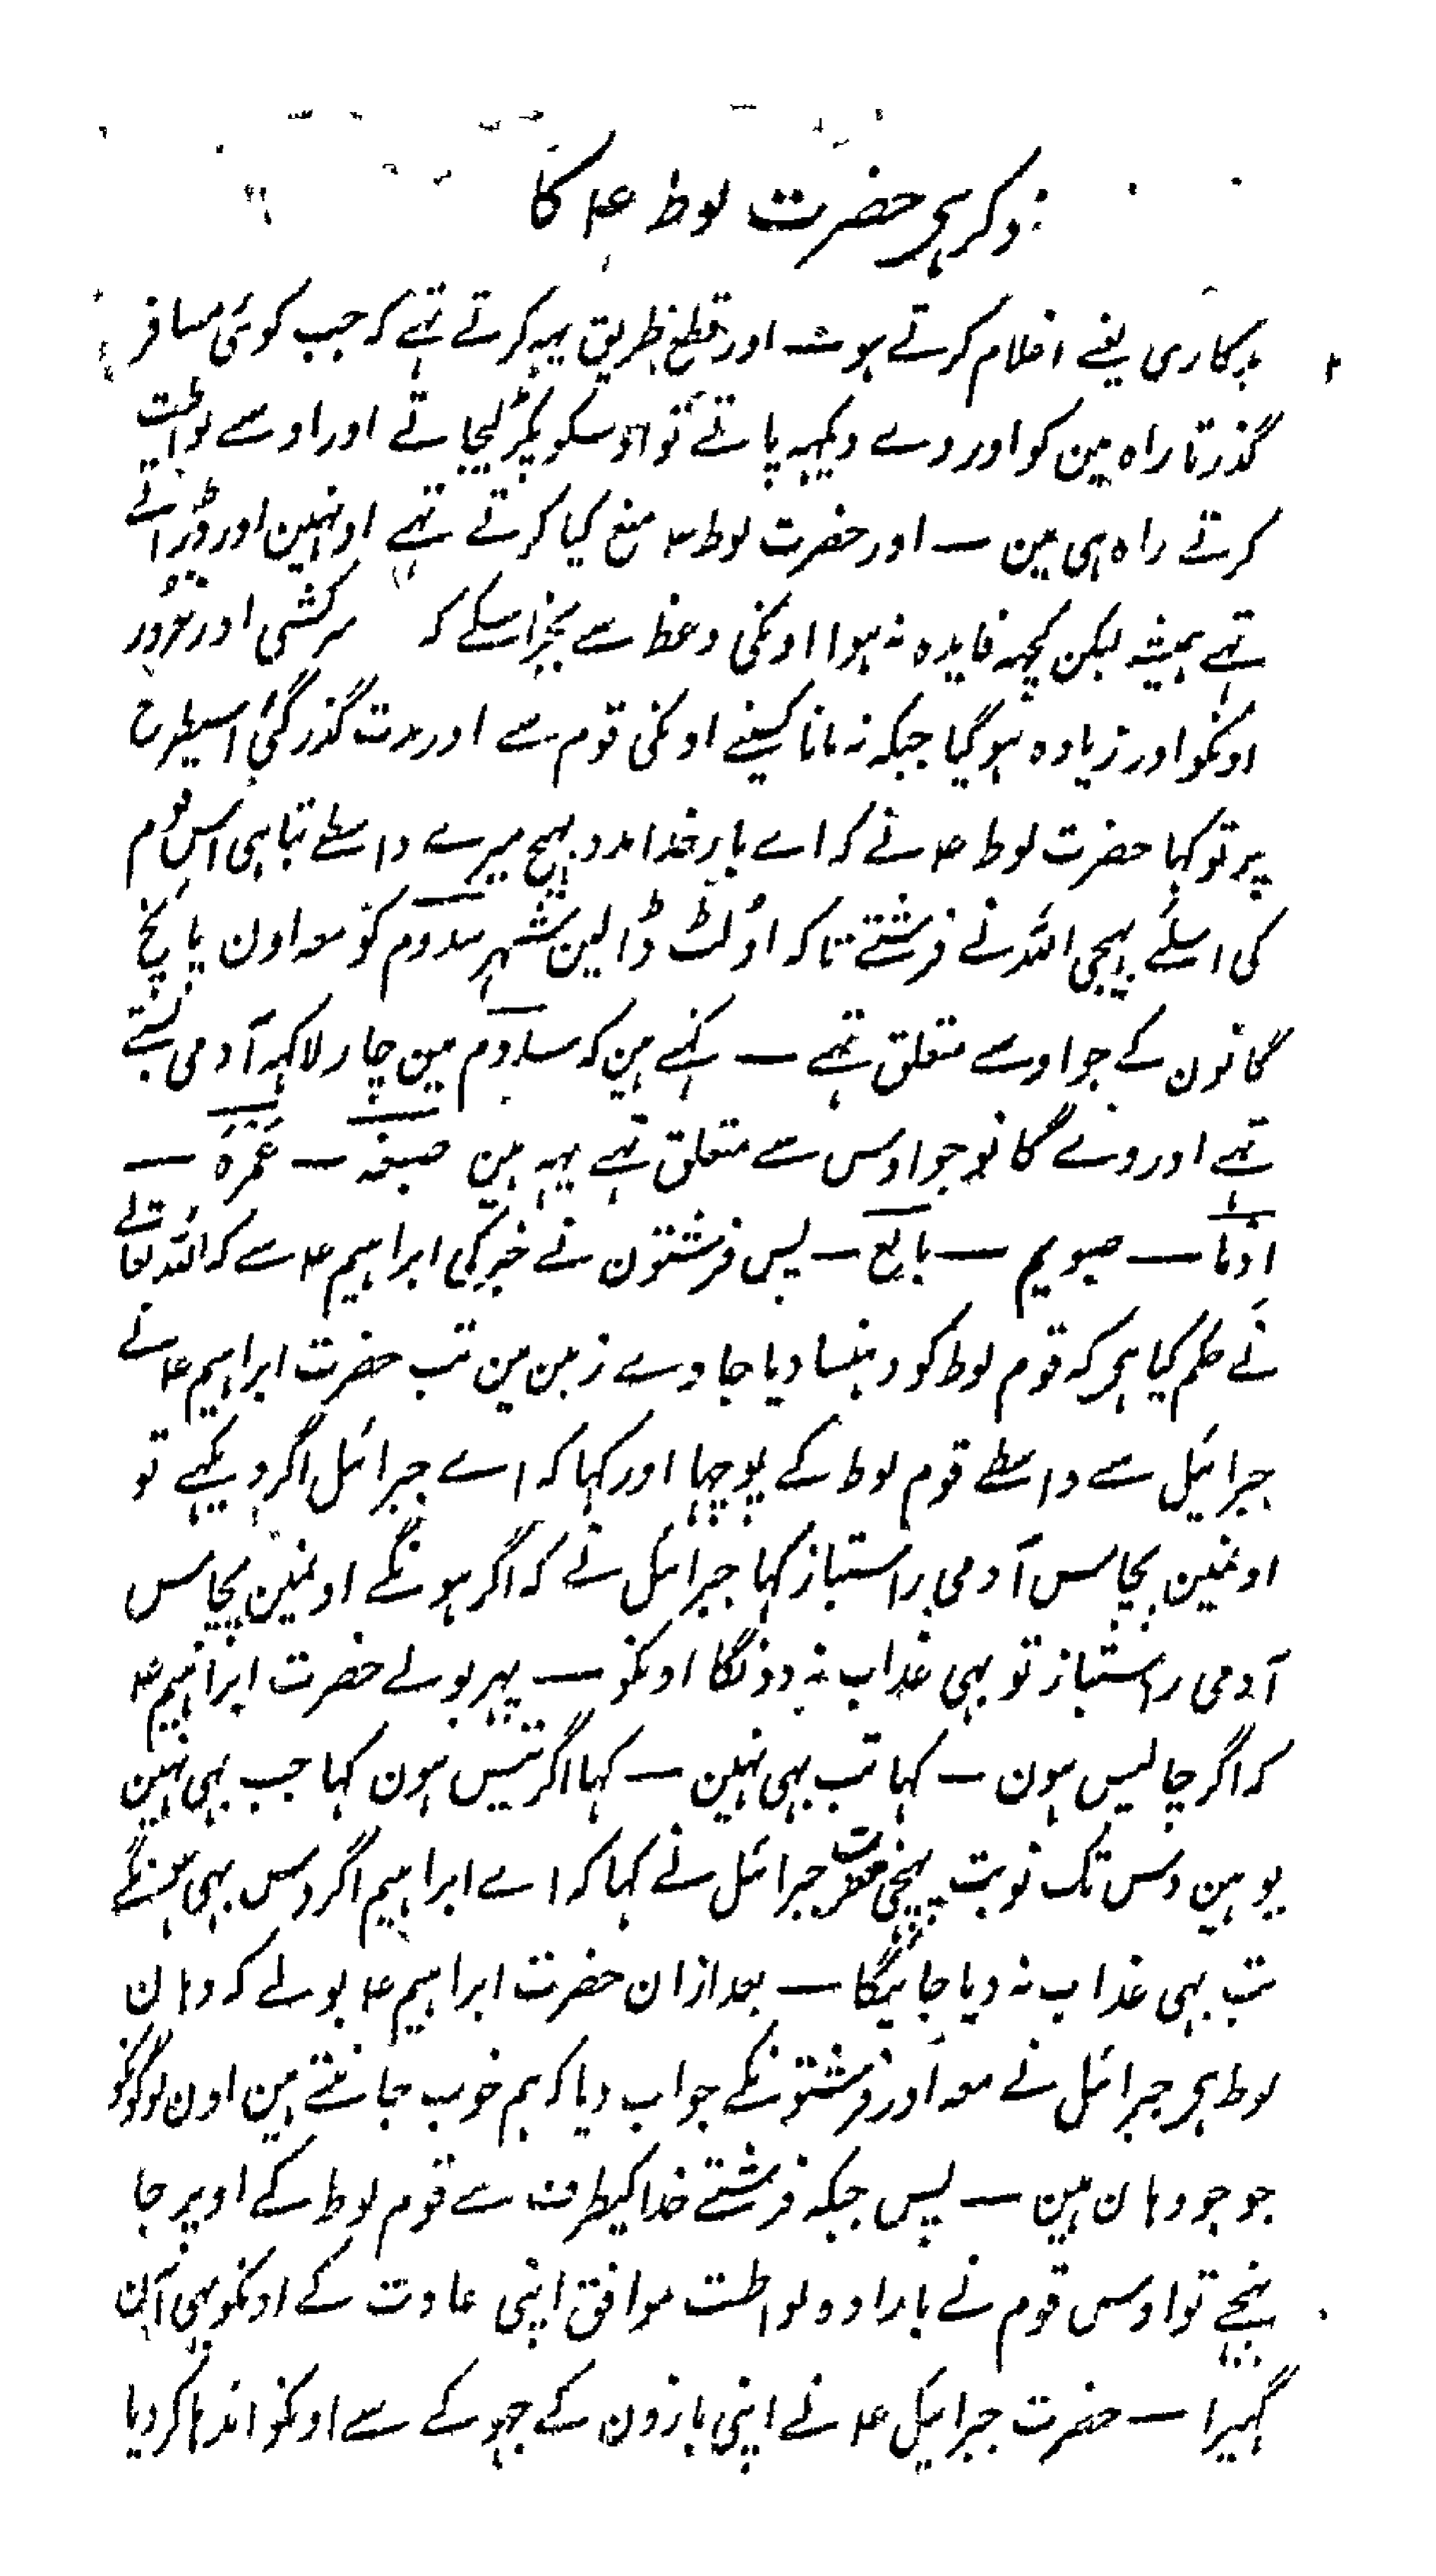 ذکر ہی حضرت لوط ع کا
بدکاری یعنے اغلام کرتے ہو ـ اور قطع طریق یہہ کرتے تہے کہ جب کوئی مسافر
گذرتا راہ مین کو اور وے دیکہہ پاتے تو اوسکو پکڑ لیجاتے اور اوسے لواطت
کرتے راہ ہی مین ـ اور حضرت لوط ع منع کیا کرتے تہے اونہین اور ڈراتے
تہے ہمیشہ لیکن کچہہ فایدہ نہ ہوا اونکی وعظ سے بجز اسکے کہ سرکشی اور غرور
اونکو اور زیادہ ہو گیا جبکہ نہ مانا کسینے اونکی قوم سے اور مدت گذر گئی اسیطرح
پر تو کہا حضرت لوط ع نے کہ اے بار خدا مدد بہیج میرے واسطے تباہی اس قوم
کی اسلئے بہیجی اللہ نے فرشتے تا کہ اولٹ ڈالین شہر سدوم کو معہ اون پانچ
گانون کے جو اوسے متعلق تہے ـ کہتے ہین کہ سدوم مین چار لاکہہ آدمی بستے
تہے اور وے گانو جو اوس سے متعلق تہے یہہ ہین صبغہ ـ عَمْرَہ ـ
ادَمَا ـ صبویم ـ بالع ـ پس فرشتون نے خبر کی ابراہیم ع سے کہ اللہ تعالے
نے حکم کیا ہی کہ قوم لوط کو دہنسا دیا جاوے زمین مین تب حضرت ابراہیم ع نے
جبرائیل سے واسطے قوم لوط کے پوچہا اور کہا کہ اے جبرائیل اگر دیکہے تو
اونمین پچاس آدمی راستباز کہا جبرائیل نے کہ اگر ہونگے اونمین پچاس
آدمی راستباز تو بہی عذاب نہ دونگا اونکو ـ پہر بولے حضرت ابراہیم ع
کہ اگر چالیس ہون ـ کہا تب بہی نہین ـ کہا اگر تیس ہون کہا جب بہی نہین
یوہین دس تک نوبت پہنچی حضرت جبرائیل نے کہا کہ اے ابراہیم اگر دس بہی ہونگے
تب بہی عذاب نہ دیا جائیگا ـ بعد ازان حضرت ابراہیم ع بولے کہ وہان
لوط ہی جبرائیل نے معہ اور فرشتونکے جواب دیا کہ ہم خوب جانتے ہین اون لوگونکو
جو جو وہان ہین ـ پس جبکہ فرشتے خدا کیطرف سے قوم لوط کے اوپر جا
پہنچے تو اوس قوم نے بارادہ لواطت موافق اپنی عادت کے اونکو بہی آن
گہیرا ـ حضرت جبرائیل ع نے اپنی بازون کے جہوکے سے اونکو اندہا کر دیا